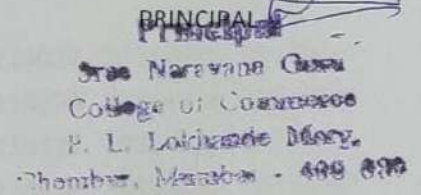 PRINCIPAL
Principal
Sree Narayana Guru
College of Commerce
P. L. Lokhande Marg,
Chembur, Mumbai - 400 0